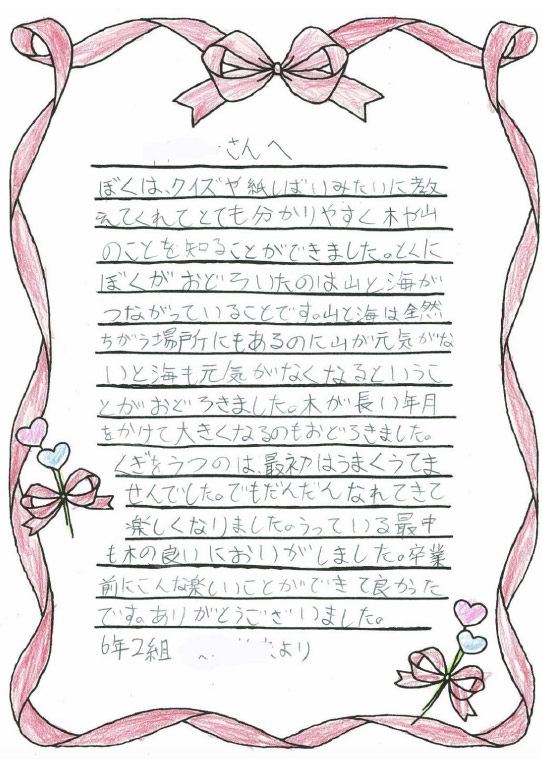 さんへ
ぼくは、クイズや紙しばいみたいに教
えてくれてとても分かりやすく木や山
のことを知ることができました。とくに
ぼくがおどろいたのは山と海が
つながっていることです。山と海は全然
ちがう場所にもあるのに山が元気がな
いと海も元気がなくなるというこ
とがおどろきました。木が長い年月
をかけて大きくなるのもおどろきました。
くぎをうつのは、最初はうまくうてま
せんでした。でもだんだんなれてきて
楽しくなりました。うっている最中
も木の良いにおいがしました。卒業
前にこんな楽しいことができて良かった
です。ありがとうございました。
6年2組 より